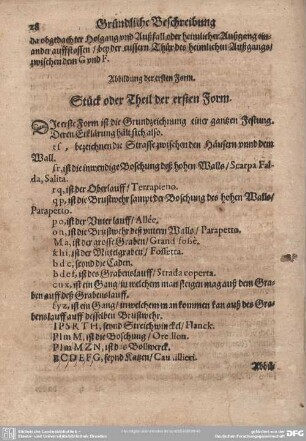 28 Gründtliche Beschreibung
da obgedachter Hofgang vnd Außfall oder heimlicher Außgang ein-
ander auffstossen / bey der eussern Thür des heimlichen Außgangs /
zwischen dem G vnd F.
Abbildung der ersten Form.
Stück oder Theil der ersten Form.
Die erste Form ist die Grundzeichnung einer gantzen Festung.
Deren Erklärung hält sich also.
tſ, bezeichnen die Strasse zwischen den Häusern vnnd dem
Wall.
ſr, ist die inwendige Boschung deß hohen Walls / Scarpa Fal-
da, Salita.
rq, ist der Oberlauff / Terrapieno.
qp, ist die Brustwehr sampt der Boschung des hohen Walls /
Parapetto.
po, ist der Vnterlauff / Allée,
on, ist die Brustwehr deß vntern Walls / Parapetto.
Ma, ist der grosse Graben / Grand fossè,
khi, ist der Mittelgraben / Fossetta.
hdc, seynd die Caden.
bdef, ist des Grabenlauff / Strada coperta.
cux, ist ein Gang / in welchem man steigen mag auß dem Gra-
ben auff deß Grabenslauff.
fyz, ist ein Gang / in welchem man kommen kan auß des Gra-
benslauff auff desselben Brustwehr.
IPSRTH, seynd Streichwinckel / Flanck.
PlmM, ist die Boschung / Orellon.
PlmMZN, ist das Bollwerck.
BCDEFG, seynd Katzen / Cauallieri.
Abbil-